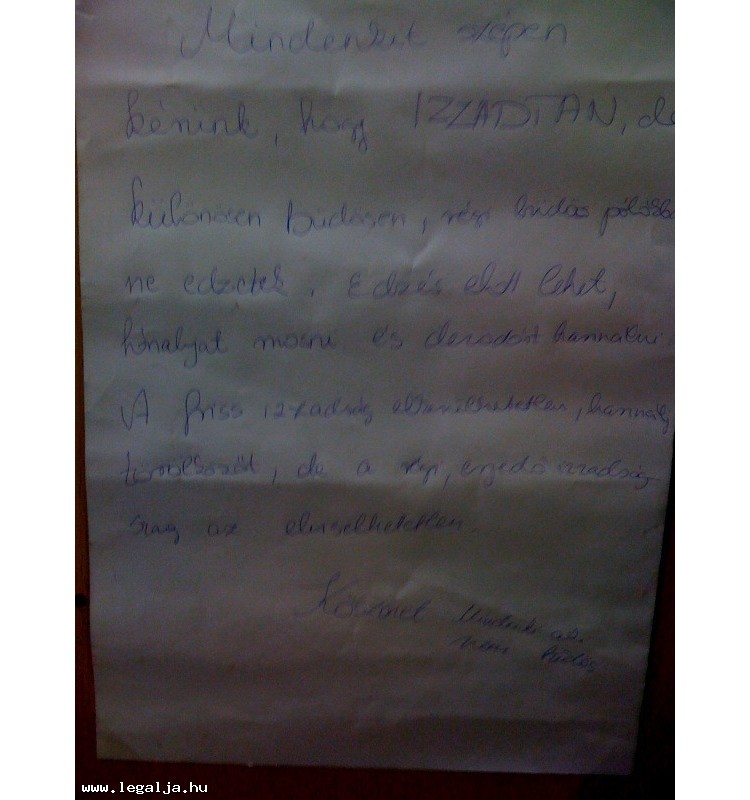 Mindenkit szépen
kérünk, hogy IZZADTAN, de
különösen büdösen, régi büdös pólóba
ne edzetek. Edzés előtt lehet,
hónalyat mosni és dezodort használni.
A friss izzadság elkerülhetetlen, használj
törölközőt, de a régi, erjedő izzadság
szag az elviselhetetlen.
Köszönet Mindenki aki
nem büdös
www.legalja.hu